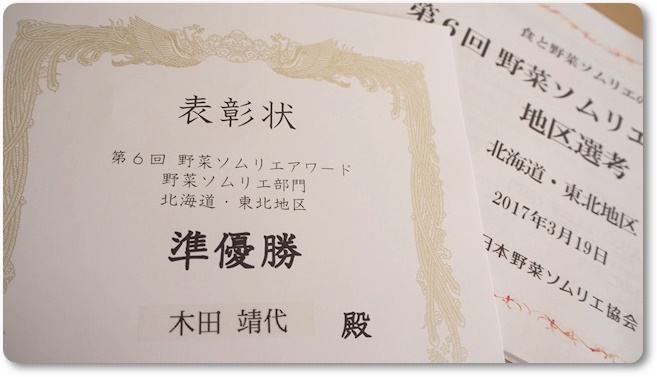 表彰状
第6回 野菜ソムリエアワード
野菜ソムリエ部門
北海道・東北地区
準優勝
木田 靖代 殿
食と野菜ソムリエの
第6回 野菜ソムリエ
地区選考
北海道・東北地区
2017年3月19日
日本野菜ソムリエ協会